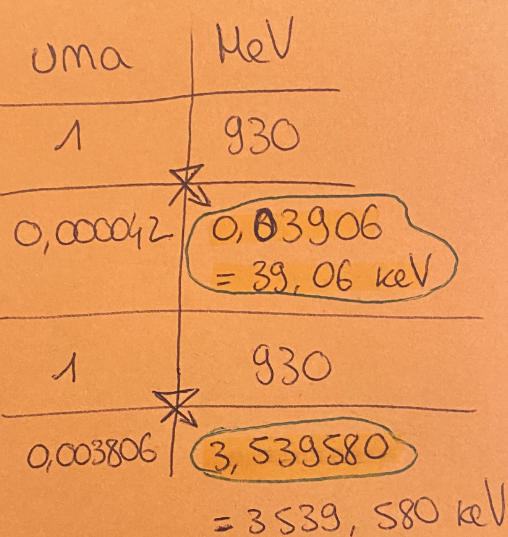 uma MeV
1 930
0,000042 0,03906
= 39,06 keV
1 930
0,003806 3,539580
= 3539, 580 keV